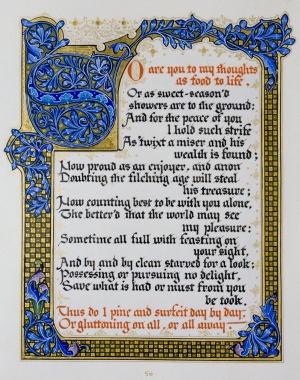 So are you to my thoughts
as food to life
Or as sweet-season'd
showers are to the ground;
And for the peace of you
I hold such strife
As 'twixt a miser and his
wealth is found;
Now proud as an enjoyer, and anon
Doubting the filching age will steal
his treasure;
Now counting best to be with you alone,
The better'd that the world may see
my pleasure:
Sometime all full with feasting on
your sight,
And by and by clean starved for a look;
Possessing or pursuing no delight,
Save what is had or must from you
be took.
Thus do I pine and surfeit day by day;
Or gluttoning on all, or all away.